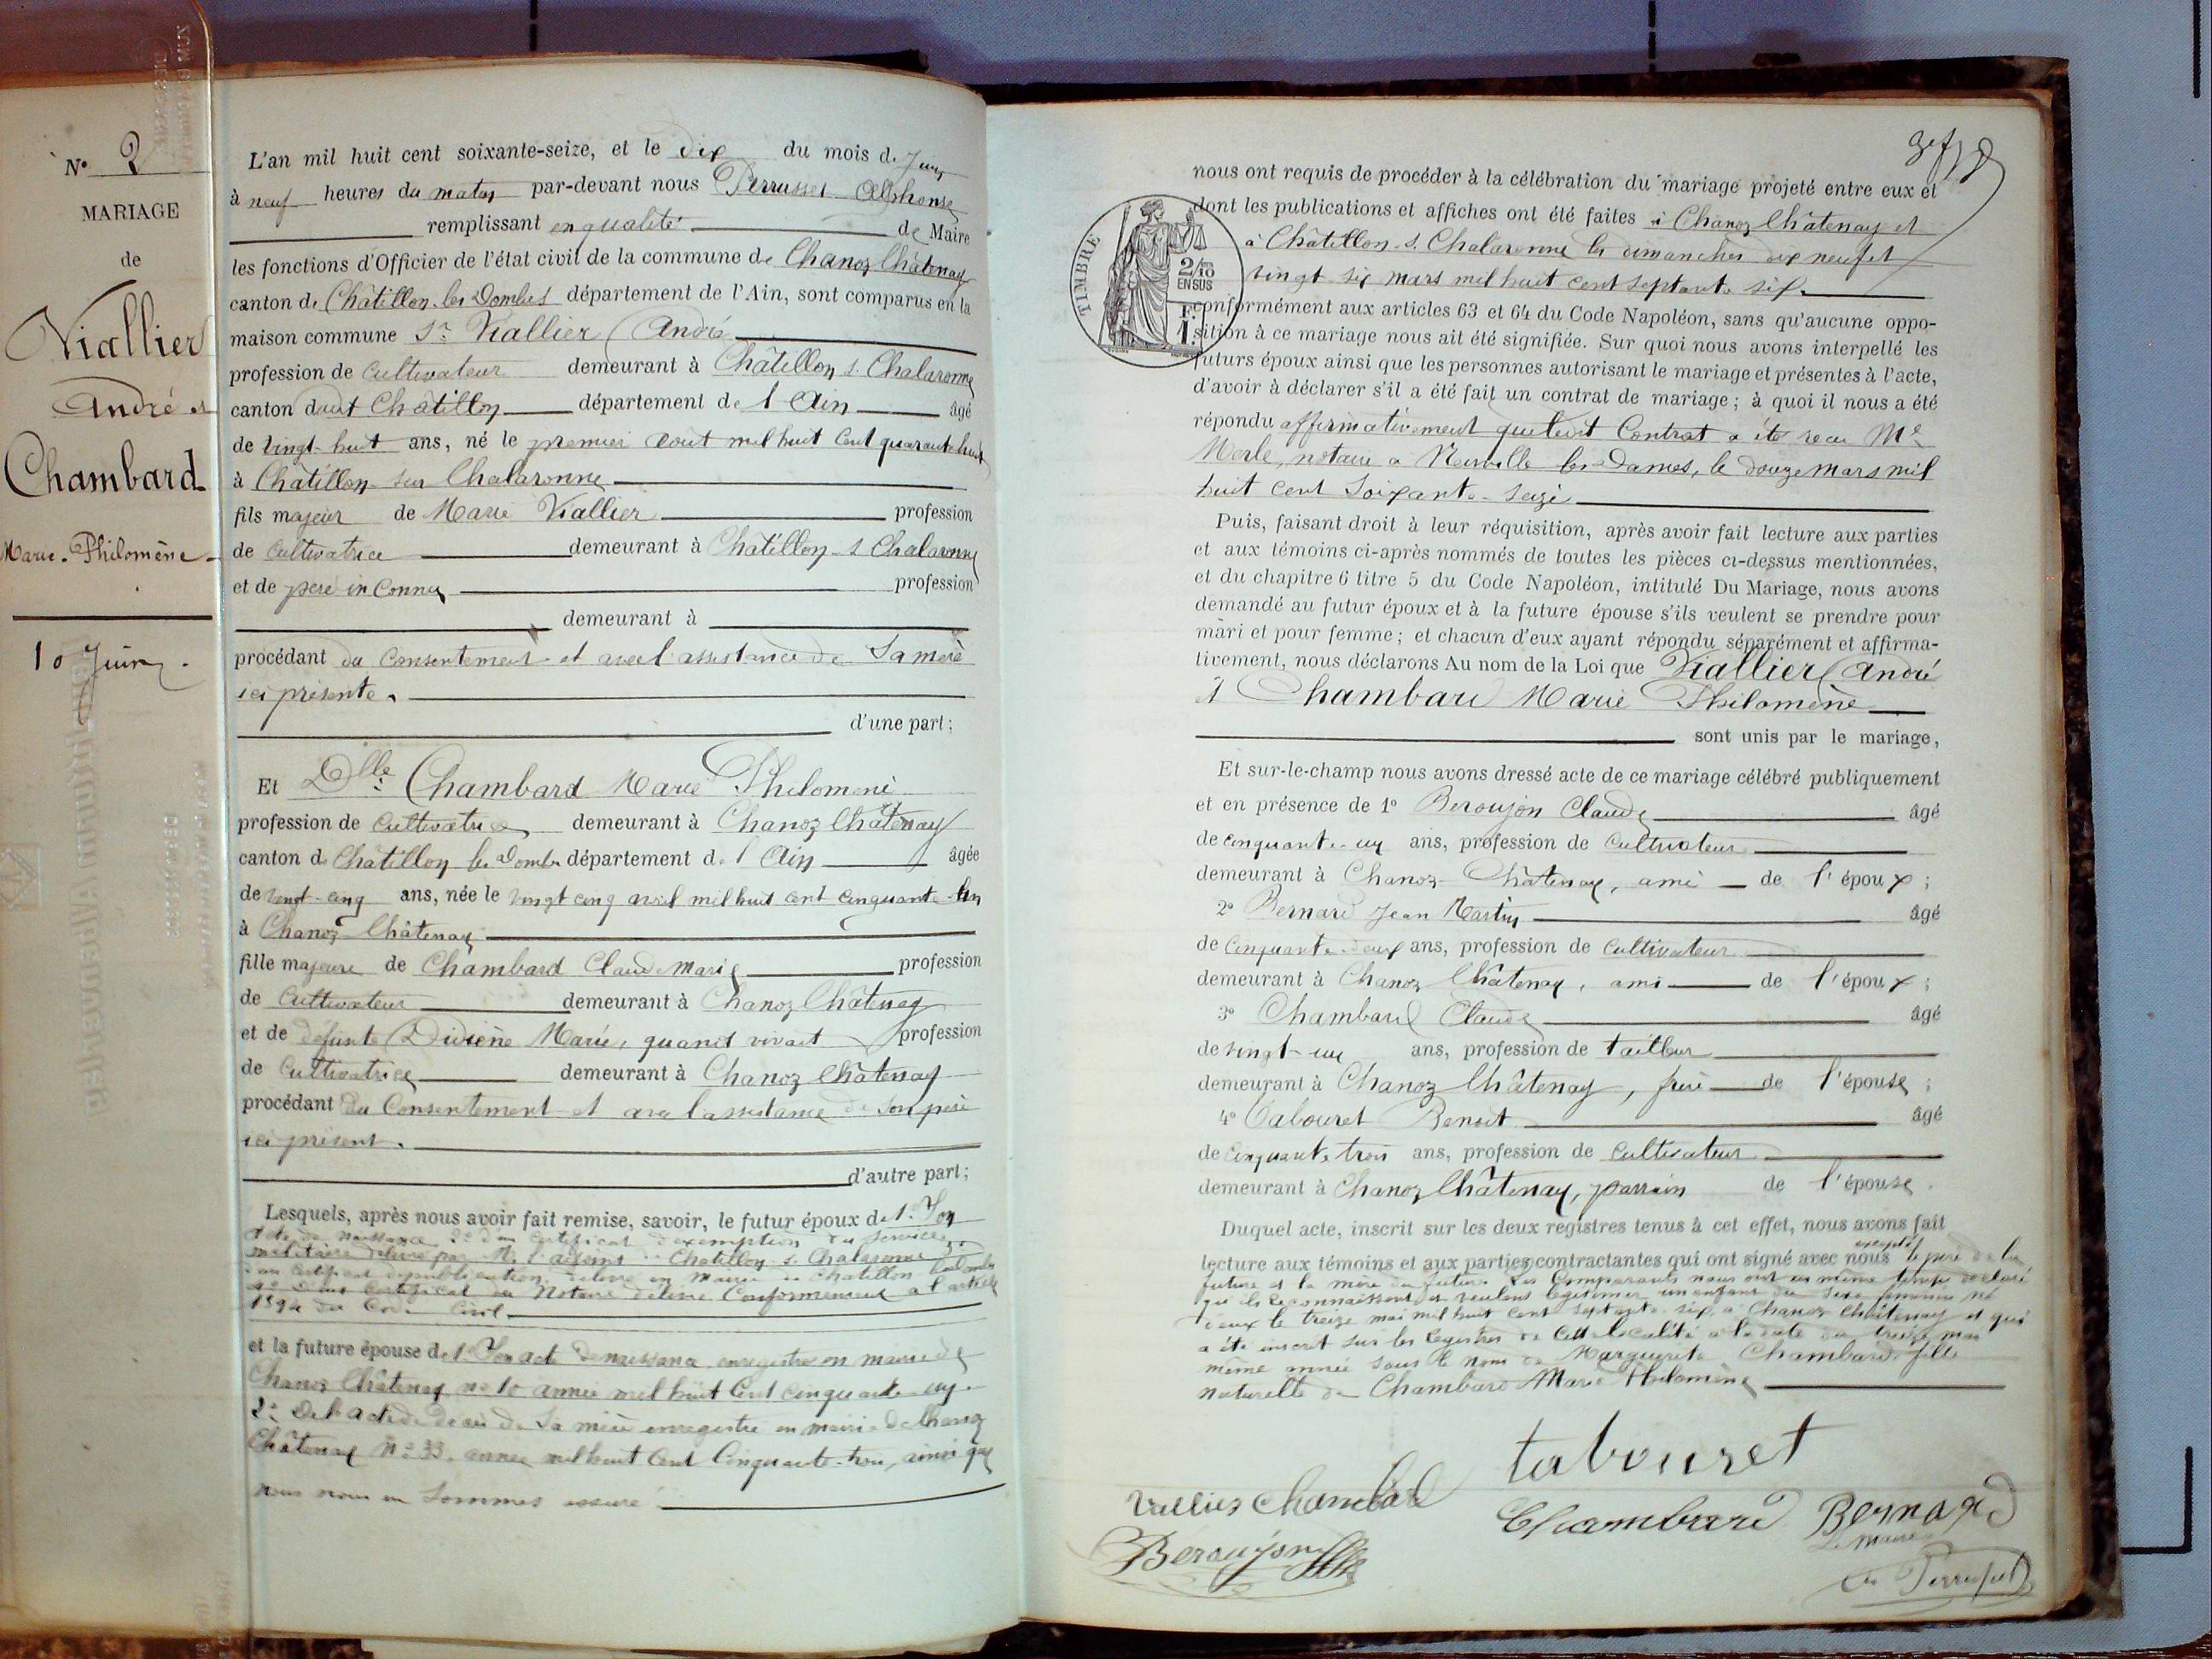 N° 2
MARIAGE
de
Viallier
André et
Chambard
Marie-Philomène
10 Juin.
L'an mil huit cent soixante-seize, et le dix du mois de Juin
à neuf heures du matin par-devant nous Perrusset Alphonse
remplissant en qualité de Maire
les fonctions d'Officier de l'état civil de la commune de Chanoz Châtenay
canton de Châtillon-les-Dombes département de l'Ain, sont comparus en la
maison commune Sr Viallier André
profession de cultivateur demeurant à Châtillon s. Chalaronne
canton dudit Châtillon département de l'Ain âgé
de vingt-huit ans, né le premier aout mil huit cent quarante huit
à Châtillon sur Chalaronne
fils majeur de Marie Viallier profession
de cultivatrice demeurant à Chatillon s Chalaronne
et de père inconnu profession
demeurant à
procédant du consentement et avec l'assistance de Sa mère
ici présente.
d'une part;
Et Dlle Chambard Marie Philomène
profession de cultivatrice demeurant à Chanoz Châtenay
canton de Châtillon les Dombes département de l'Ain âgée
de vingt-cinq ans, née le vingt cinq avril mil huit cent cinquante-un
à Chanoz Châtenay
fille majeure de Chambard Claude Marie profession
de cultivateur demeurant à Chanoz Châtenay
et de défunte Marie, quand vivait profession
de cultivatrice demeurant à Chanoz Châtenay
procédant du consentement et avec l'assistance de son père
ici présent.
d'autre part;
Lesquels, après nous avoir fait remise, savoir, le futur époux de 1° Son
acte de naissance 2° d'un certificat d'exemption du service
militaire délivré par Mr l'adjoint de Chatillon s. Chalaronne
un certificat de publication délivré en mairie de Chatillon
4° D'un certificat du Notaire délivré conformément à l'article
1394 du Code Civil.
et la future épouse de 1° Son acte de naissance enregistré en mairie de
Chanoz Châtenay n° 10 année mil huit cent cinquante-un.
2° De l'acte de décès de sa mère enregistré en mairie de Chanoz
Châtenay n° 33, année mil huit cent cinquante-trois, ainsi que
nous nous en sommes assuré
nous ont requis de procéder à la célébration du mariage projeté entre eux et
dont les publications et affiches ont été faites à Chanoz Châtenay et
à Châtillon s. Chalaronne les dimanches dix neuf et
vingt six mars mil huit cent septante six.
TIMBRE
2/10
EN SUS
1 F.
conformément aux articles 63 et 64 du Code Napoléon, sans qu'aucune oppo-
sition à ce mariage nous ait été signifiée. Sur quoi nous avons interpellé les
futurs époux ainsi que les personnes autorisant le mariage et présentes à l'acte,
d'avoir à déclarer s'il a été fait un contrat de mariage; à quoi il nous a été
répondu affirmativement que ledit Contrat a été recu Me
Merle, notaire à Neuville les Dames, le douze mars mil
huit cent soixante-seize
Puis, faisant droit à leur réquisition, après avoir fait lecture aux parties
et aux témoins ci-après nommés de toutes les pièces ci-dessus mentionnées,
et du chapitre 6 titre 5 du Code Napoléon, intitulé Du Mariage, nous avons
demandé au futur époux et à la future épouse s'ils veulent se prendre pour
mari et pour femme; et chacun d'eux ayant répondu séparément et affirma-
tivement, nous déclarons Au nom de la Loi que Viallier André
et Chambard Marie Philomène
sont unis par le mariage,
Et sur-le-champ nous avons dressé acte de ce mariage célébré publiquement
et en présence de 1° Beroujon Claude âgé
de cinquante-un ans, profession de cultivateur
demeurant à Chanoz-Châtenay, ami de l'époux;
2° Bernard Jean Martin âgé
de cinquante-deux ans, profession de cultivateur
demeurant à Chanoz Châtenay, ami de l'époux;
3° Chambard Claude âgé
de vingt-un ans, profession de tailleur
demeurant à Chanoz Châtenay, frère de l'épouse;
4° Tabouret Benoit âgé
de cinquante trois ans, profession de cultivateur
demeurant à Chanoz Châtenay, parrain de l'épouse.
Duquel acte, inscrit sur les deux registres tenus à cet effet, nous avons fait
lecture aux témoins et aux parties contractantes qui ont signé avec nous excepté le père de la
future et la mère du futur. Les Comparants nous ont en même temps déclaré
qu'ils reconnaissent et veulent légitimer un enfant du sexe féminin né
d'eux le treize mai mil huit cent septante-six, à Chanoz Châtenay et qui
a été inscrit sur les Registres de cette localité à la date du treize mai
même année sous le nom de Marguerite Chambard fille
naturelle de Chambard Marie Philomène
tabouret
Vallier Chambard
Chambard Bernard
Le maire
Beroujon
Perrusset